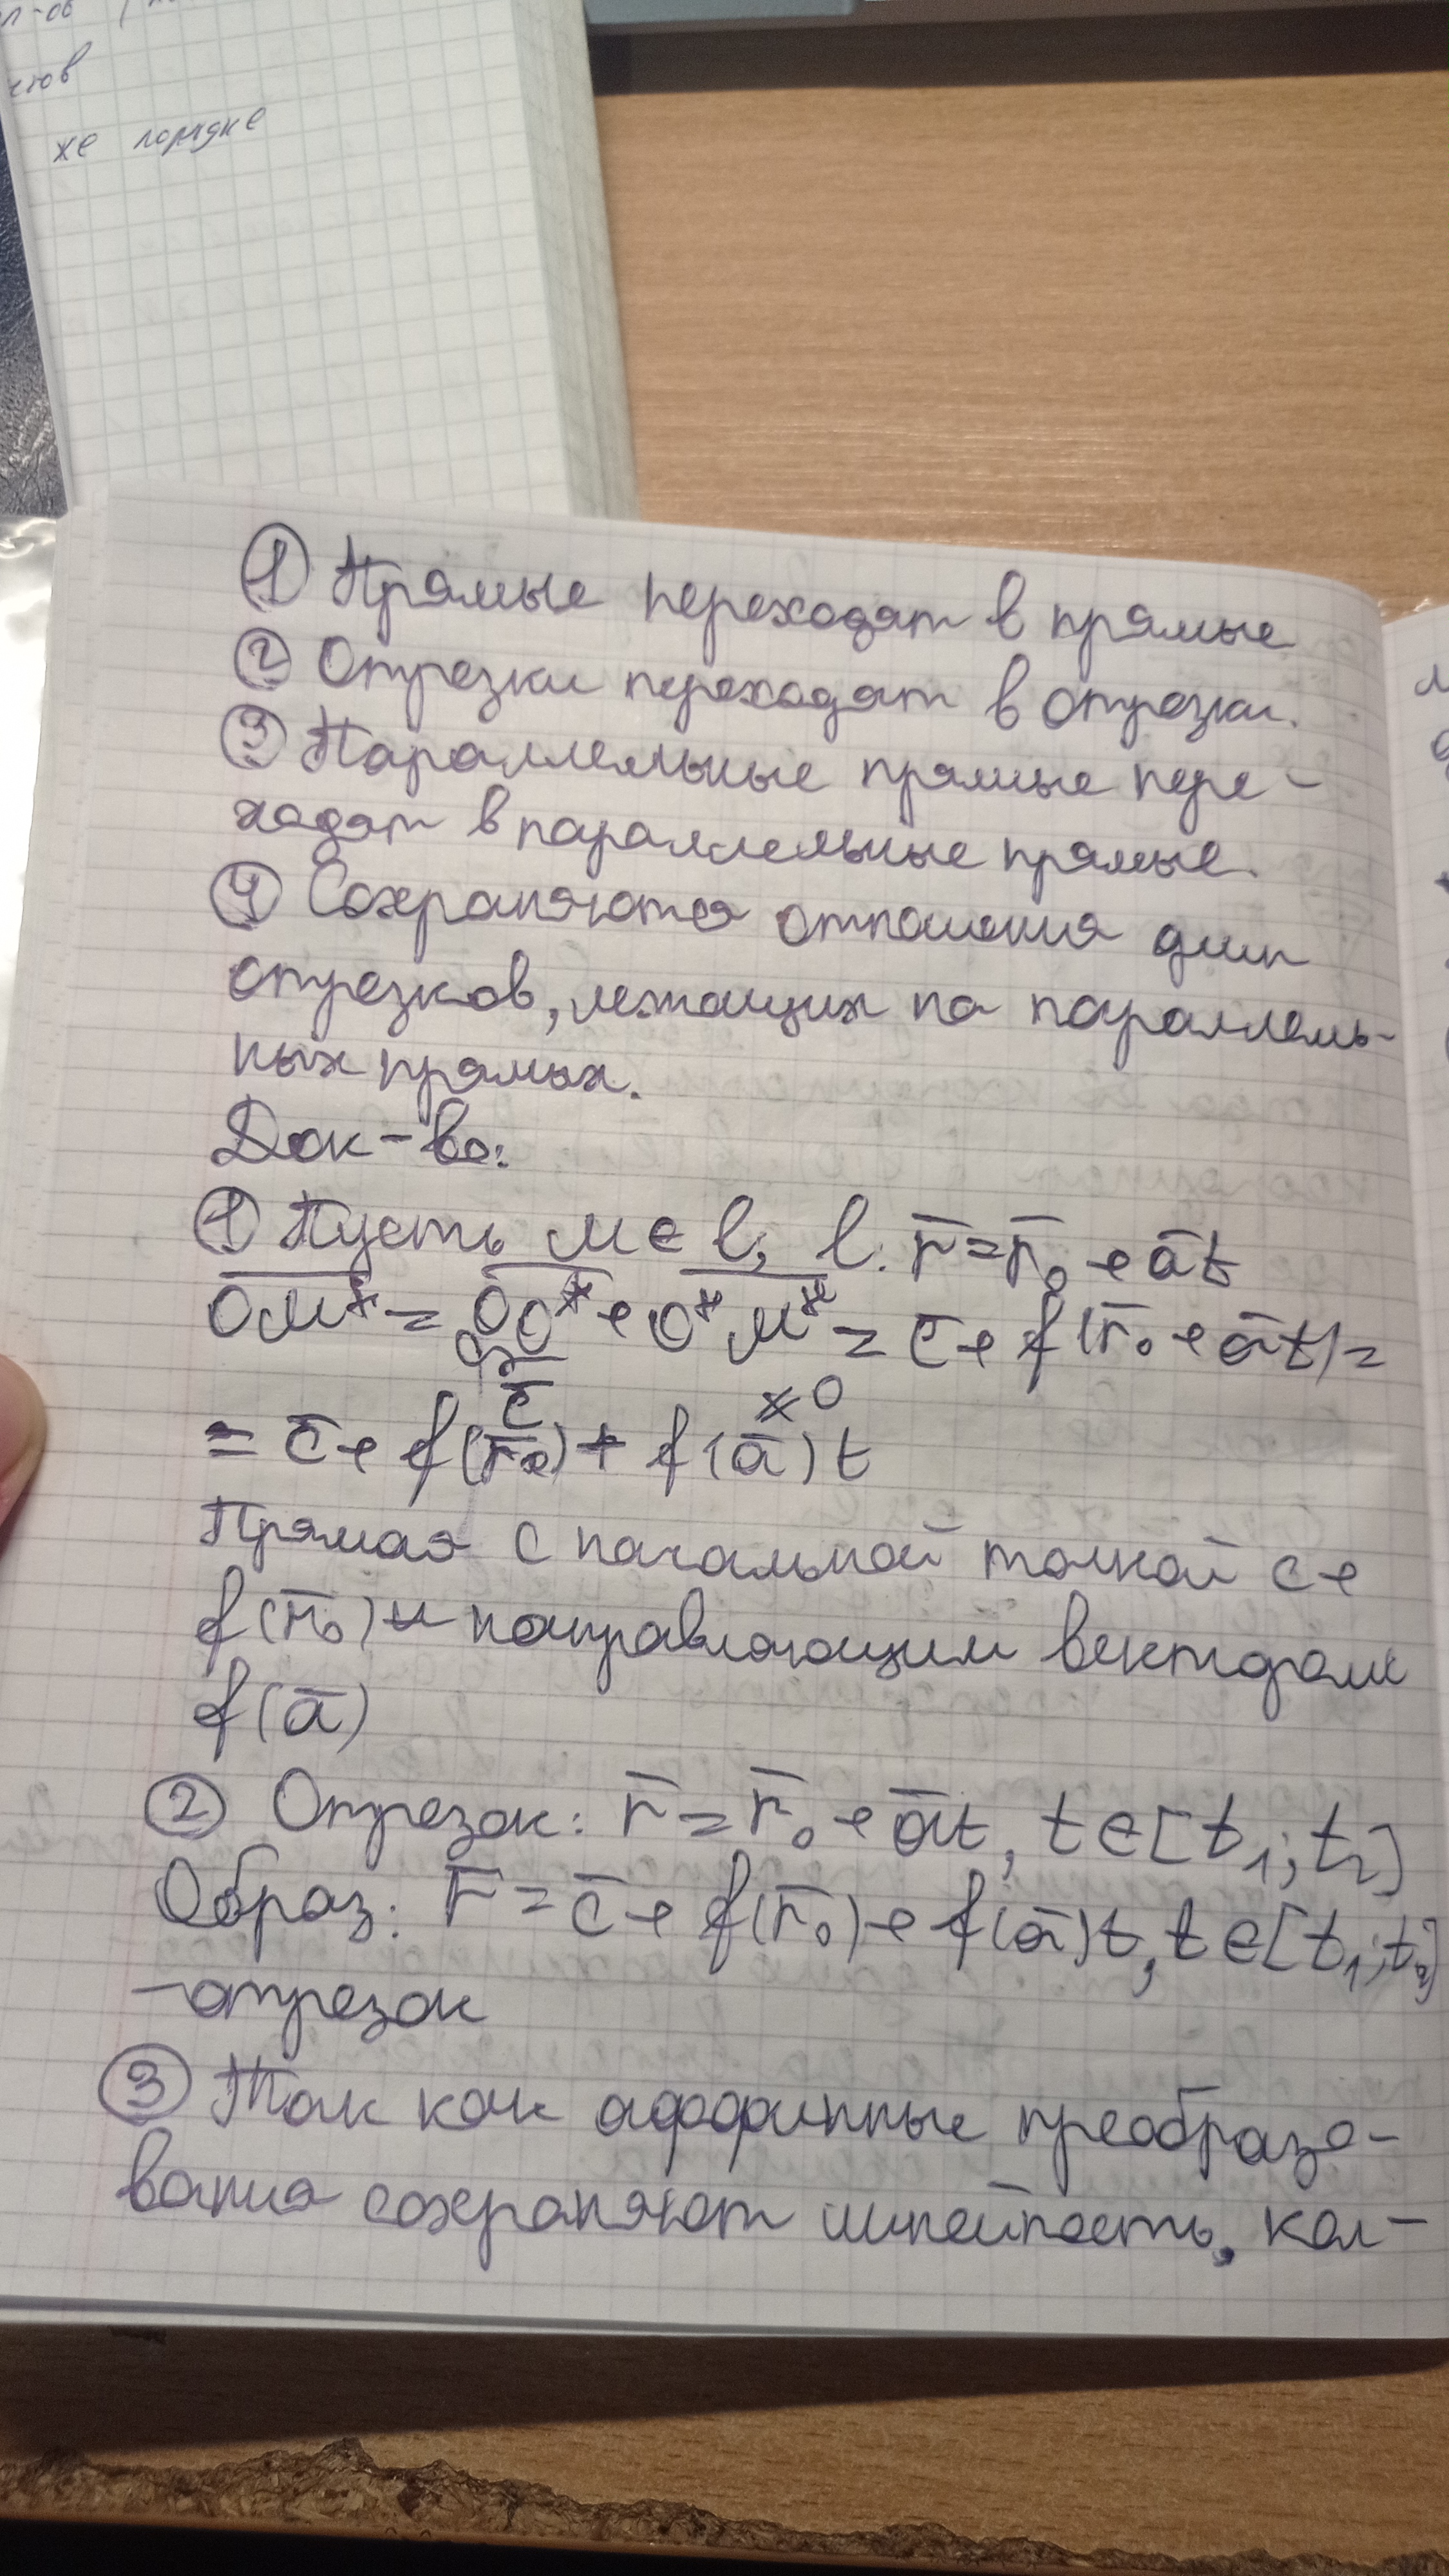 же порядке
① Прямые переходят в прямые
② Отрезки переходят в отрезки.
③ Параллельные прямые пере-
ходят в параллельные прямые.
④ Сохраняются отношения длин
отрезков, лежащих на параллель-
ных прямых.
Док-во:
① Пусть M ∈ l, l: r̄ = r̄₀ + āt
OM* = OO* + O*M* = c̄ + f(r̄₀ + āt) =
c̄ ≠ 0
= c̄ + f(r̄₀) + f(ā)t
Прямая с начальной точкой c +
f(r̄₀) и направляющим вектором
f(ā)
② Отрезок: r̄ = r̄₀ + āt, t ∈ [t₁; t₂]
Образ: r̄ = c̄ + f(r̄₀) + f(ā)t, t ∈ [t₁; t₂]
- отрезок
③ Так как аффинные преобразо-
вания сохраняют линейность, кол-